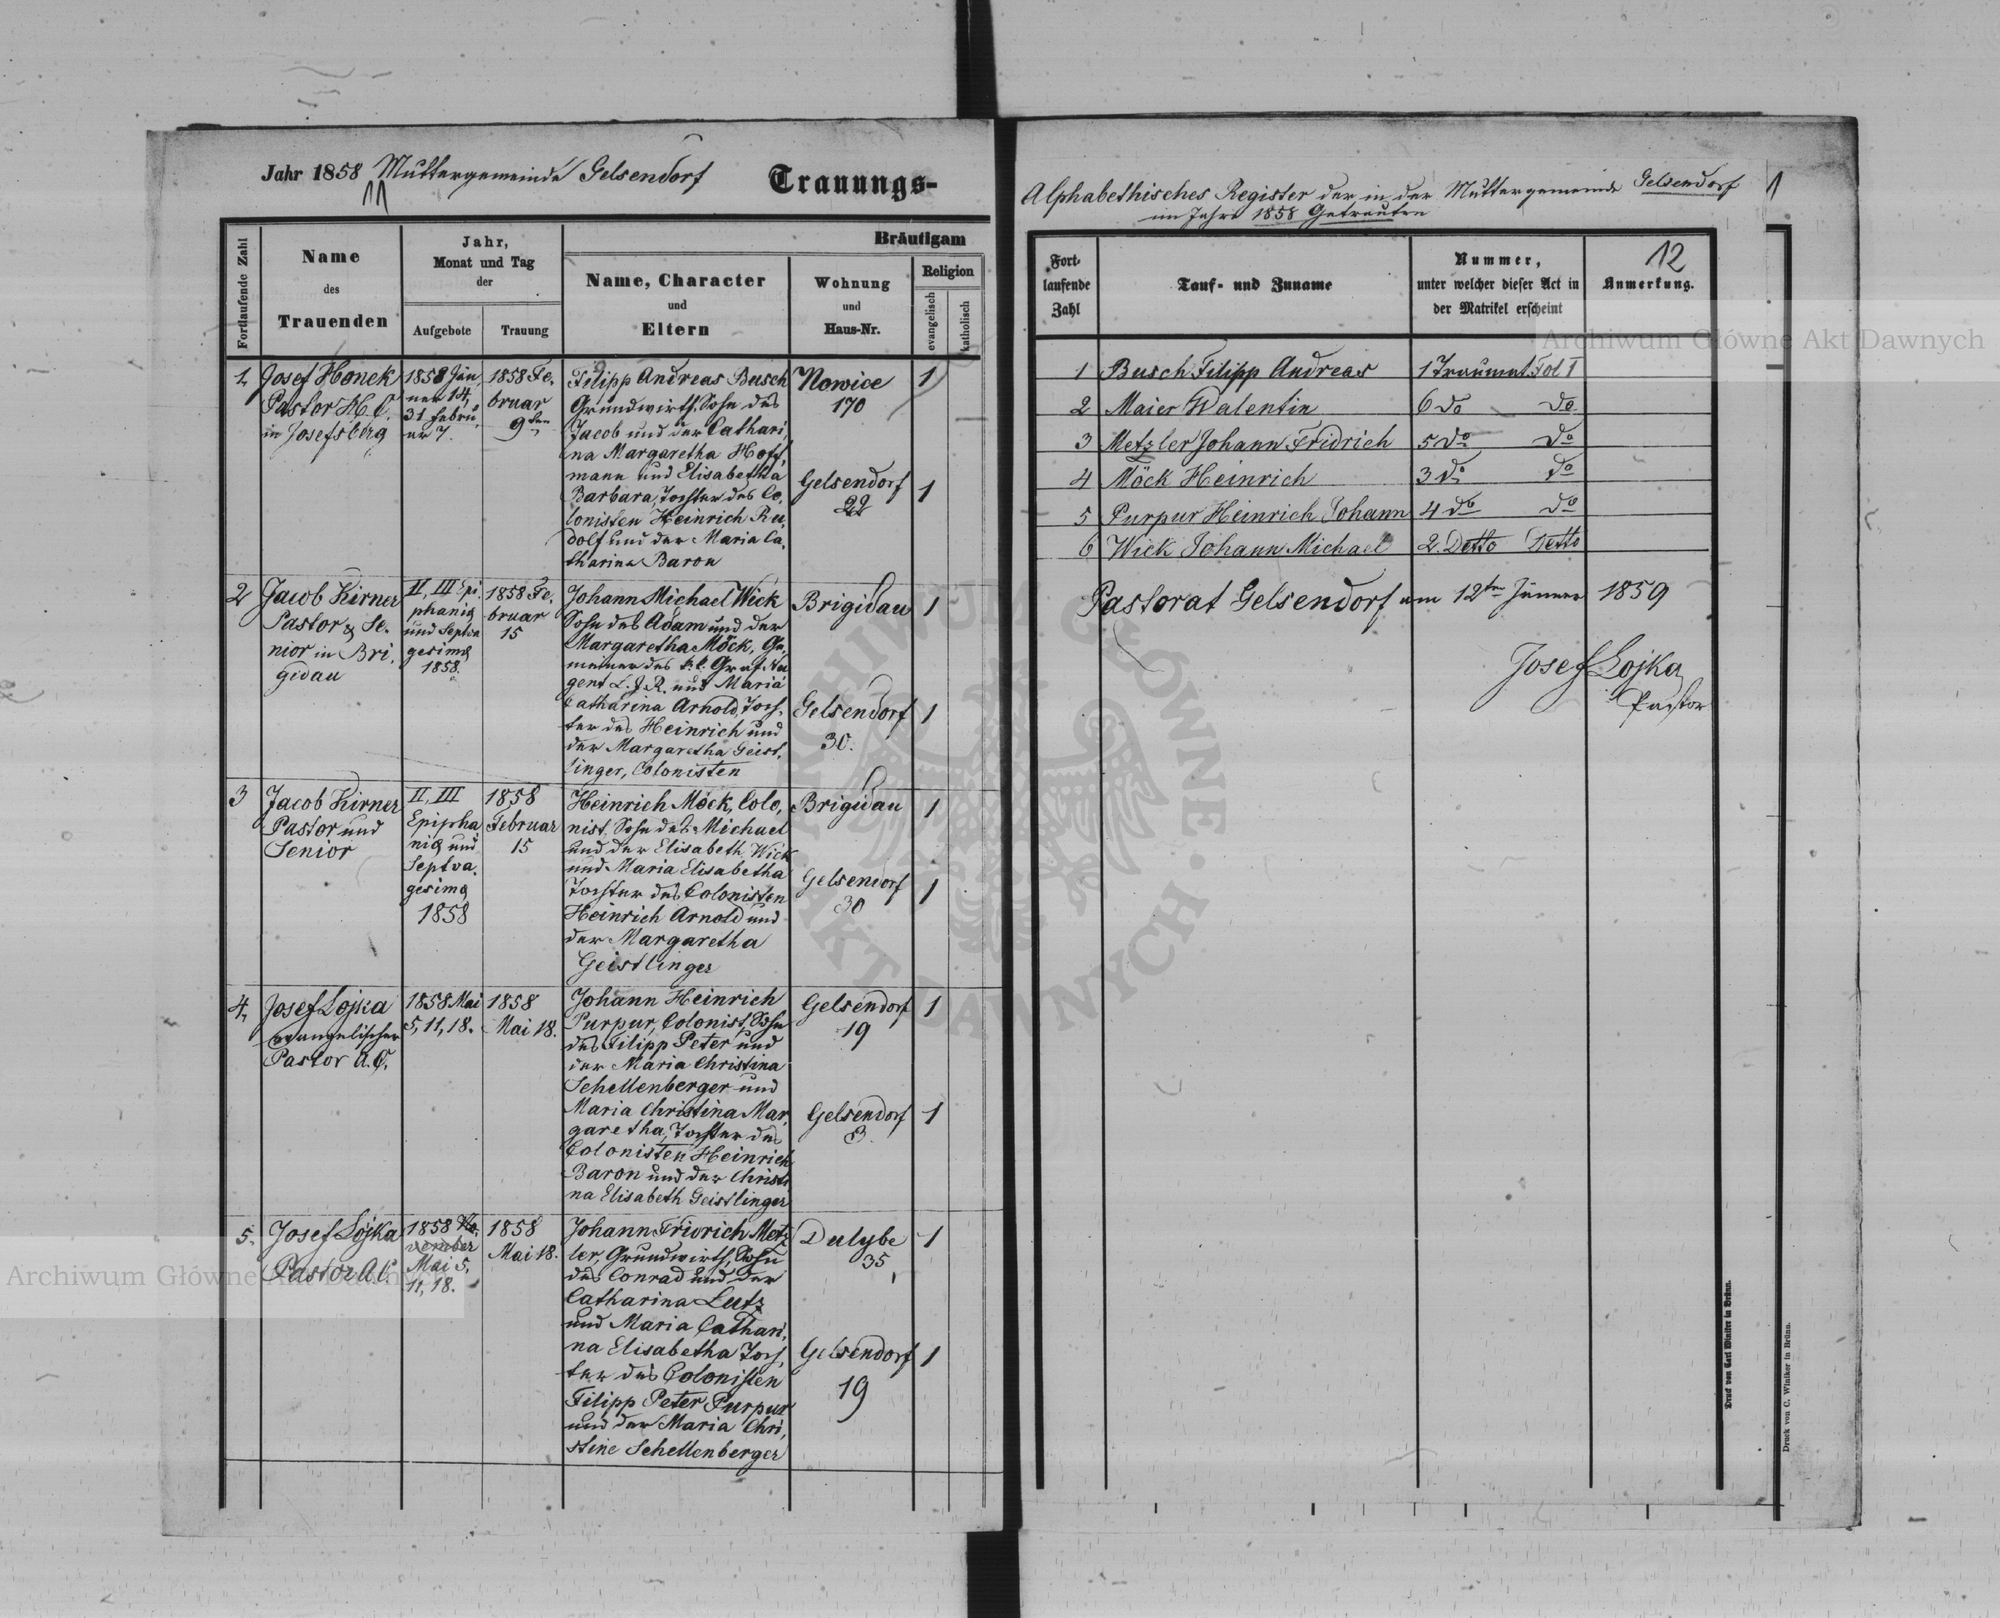 Jahr 1858 Muttergemeinde Gelsendorf Trauungs-
11
Fortlaufende Zahl
Name
des
Trauenden
Jahr,
Monat und Tag
der
Aufgebote
Trauung
Bräutigam
Name, Character
und
Eltern
Wohnung
und
Haus-Nr.
Religion
evangelisch
katholisch
1,
Josef Honek
Pastor H. C.
in Josefsberg
1858 Jän
ner 14,
31 Febru,
ar 7.
1858 Fe,
bruar
9ten
Filipp Andreas Busch
Grundwirth, Sohn des
Jacob und der Cathari
na Margaretha Hoff,
mann und Elisabetha
Barbara, Tochter des Co,
lonisten Heinrich Ru,
dolf und der Maria Ca,
tharina Baron
Nowice
170
Gelsendorf
22
1
1
2
Jacob Kirner
Pastor & Se,
nior in Bri,
gidau
II, III Epi
phaniä
und Septua
gesimä
1858.
1858 Fe,
bruar
15
Johann Michael Wick
Sohn des Adam und der
Margaretha Möck, Ge,
meiner des k. k. Graf Nu
gent L. J. R. und Maria
Catharina Arnold, Toch,
ter des Heinrich und
der Margaretha Geist,
linger, Colonisten
Brigidau
Gelsendorf
30.
1
1
3
Jacob Kirner
Pastor und
Senior
II, III
Epipha
niä und
Septua,
gesimä
1858
1858
Februar
15
Heinrich Möck, Colo,
nist, Sohn des Michael
und der Elisabeth Wick
und Maria Elisabetha
Tochter des Colonisten
Heinrich Arnold und
der Margaretha
Geistlinger
Brigidau
Gelsendorf
30
1
1
4,
Josef Lojka
evangelischer
Pastor A. C.
1858 Mai
5, 11, 18.
1858
Mai 18.
Johann Heinrich
Purpur, Colonist, Sohn
des Filipp Peter und
der Maria Christina
Schellenberger und
Maria Christina Mar,
garetha, Tochter des
Colonisten Heinrich
Baron und der Christi
na Elisabeth Geistlinger
Gelsendorf
19
Gelsendorf
8.
1
1
5.
Josef Lojka
Pastor A. C.
1858 No,
vember
Mai 5,
11, 18.
1858
Mai 18.
Johann Fridrich Metz
ler, Grundwirth, Sohn
des Conrad und der
Catharina Lutz
und Maria Cathari,
na Elisabetha Toch,
ter des Colonisten
Filipp Peter Purpur
und der Maria Chri,
stine Schellenberger
Dulybe
35
Gelsendorf
19
1
1
Alphabethisches Register der in der Muttergemeinde Gelsendorf
im Jahre 1858 Getrauten
1
Fort-
laufende
Zahl
Tauf- und Zuname
Nummer,
unter welcher dieser Act in
der Matrikel erscheint
12
Anmerkung.
1 Busch Filipp Andreas 1 Traumat. Fol I
2 Maier Walentin 6 do do
3 Metzler Johann Fridrich 5 do do
4 Möck Heinrich 3 do do
5 Purpur Heinrich Johann 4 do do
6 Wick Johann Michael 2. Detto Detto
Pastorat Gelsendorf am 12ten Jänner 1859
Josef Lojka
Pastor
Druck von Carl Winiker in Brünn.
Druck von C. Winiker in Brünn.
Archiwum Główne Akt Dawnych
Archiwum Główne Akt Dawnych
ARCHIWUM GŁÓWNE · AKT DAWNYCH ·